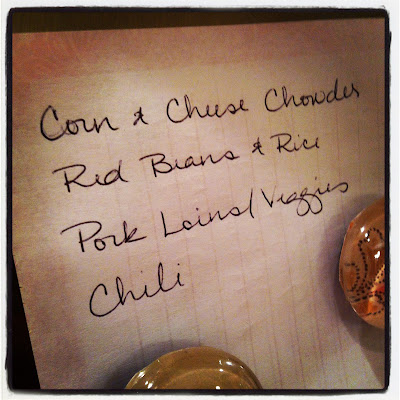 Corn & Cheese Chowder
Red Beans & Rice
Pork Loins/Veggies
Chili